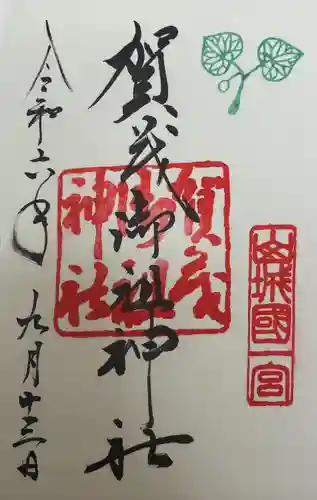 山城國一宮
賀茂御祖神社
賀茂御祖神社
令和六年
九月十三日